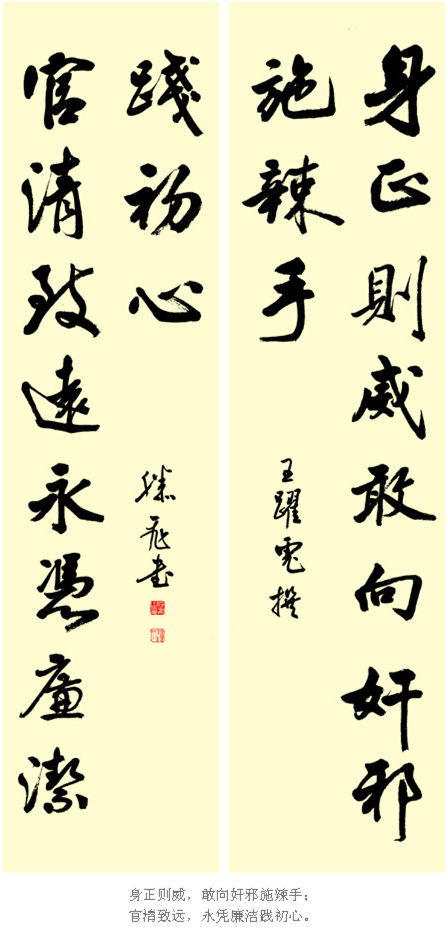 身正則威敢向奸邪
施辣手
王躍電撰
官清致遠永憑廉潔
踐初心
身正则威，敢向奸邪施辣手；
官清致远，永凭廉洁践初心。